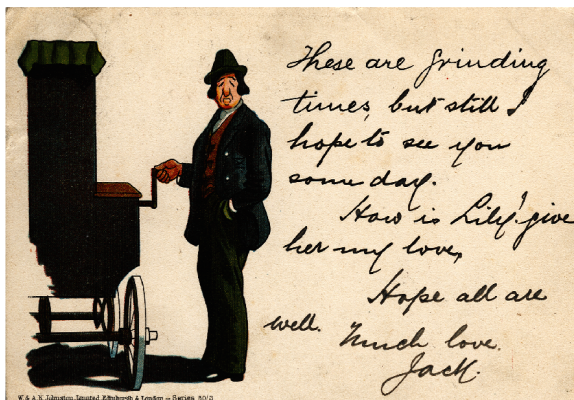 These are grinding
times, but still I
hope to see you
some day.
How is Lily? give
her my love,
Hope all are
well.
Much love.
Jack.
W. & A. K. Johnston, Limited, Edinburgh & London — Series